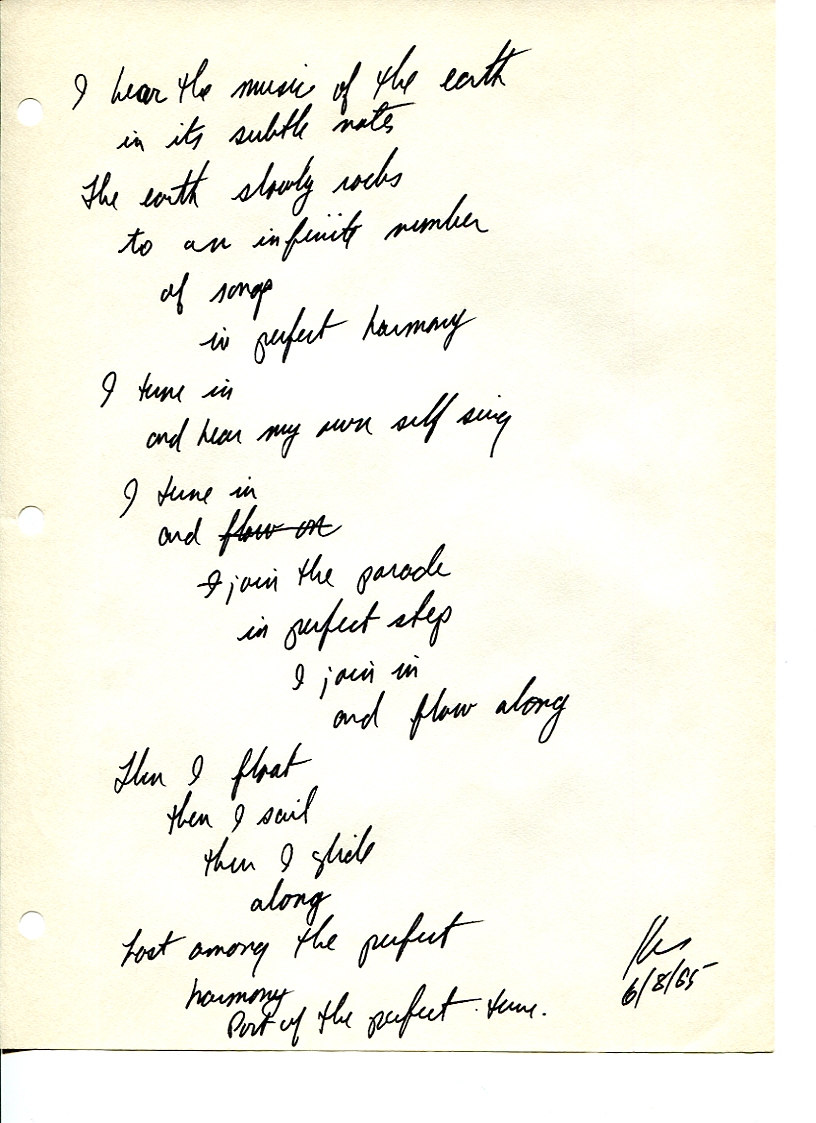 I hear the music of the earth
in its subtle notes
The earth slowly rocks
to an infinite number
of songs
in perfect harmony
I tune in
and hear my own self sing
I tune in
and flow on
I join the parade
in perfect step
I join in
and flow along
Then I float
then I sail
then I glide
along
Lost among the perfect
harmony
Part of the perfect tune.
6/8/65